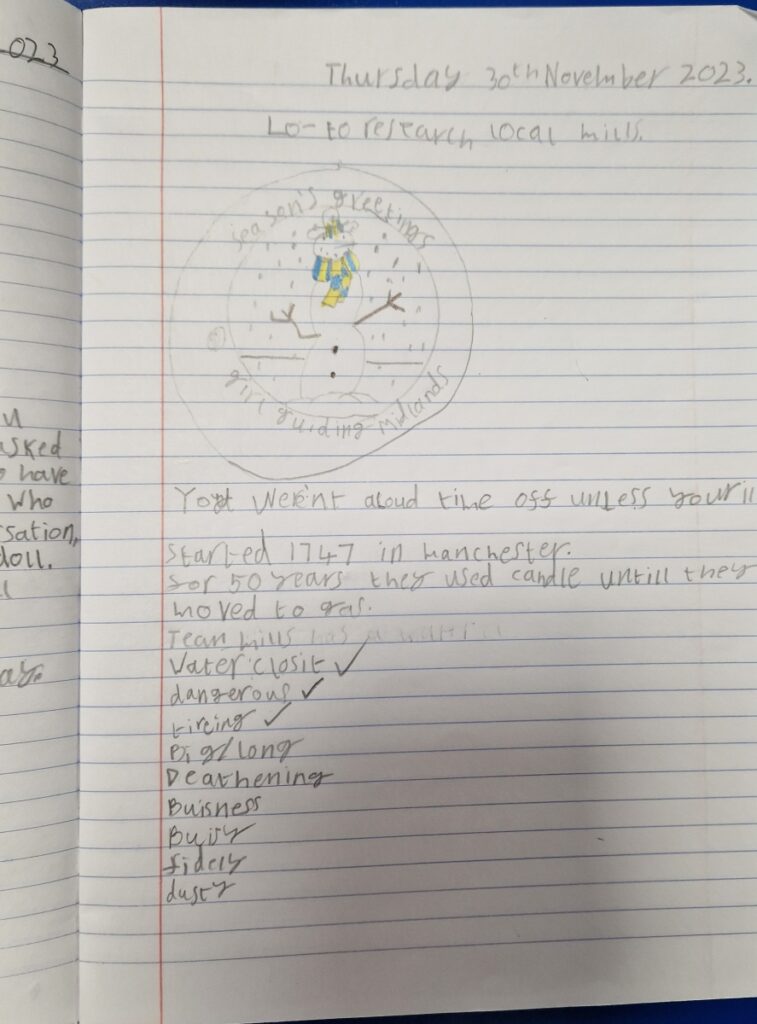 2023
Thursday 30th November 2023.
LO- to research local mills.
season's greetings
girl guiding midlands
asked
have
who
sation,
doll.
You Weren't aloud time off unless your ill
Started 1747 in Manchester.
for 50 years they used candle untill they
moved to gas.
Tean mills has a
Water closit ✓
dangerous ✓
tireing ✓
Big/long
Deathening
Buisness
Buisy
fidely
dusty
ay.